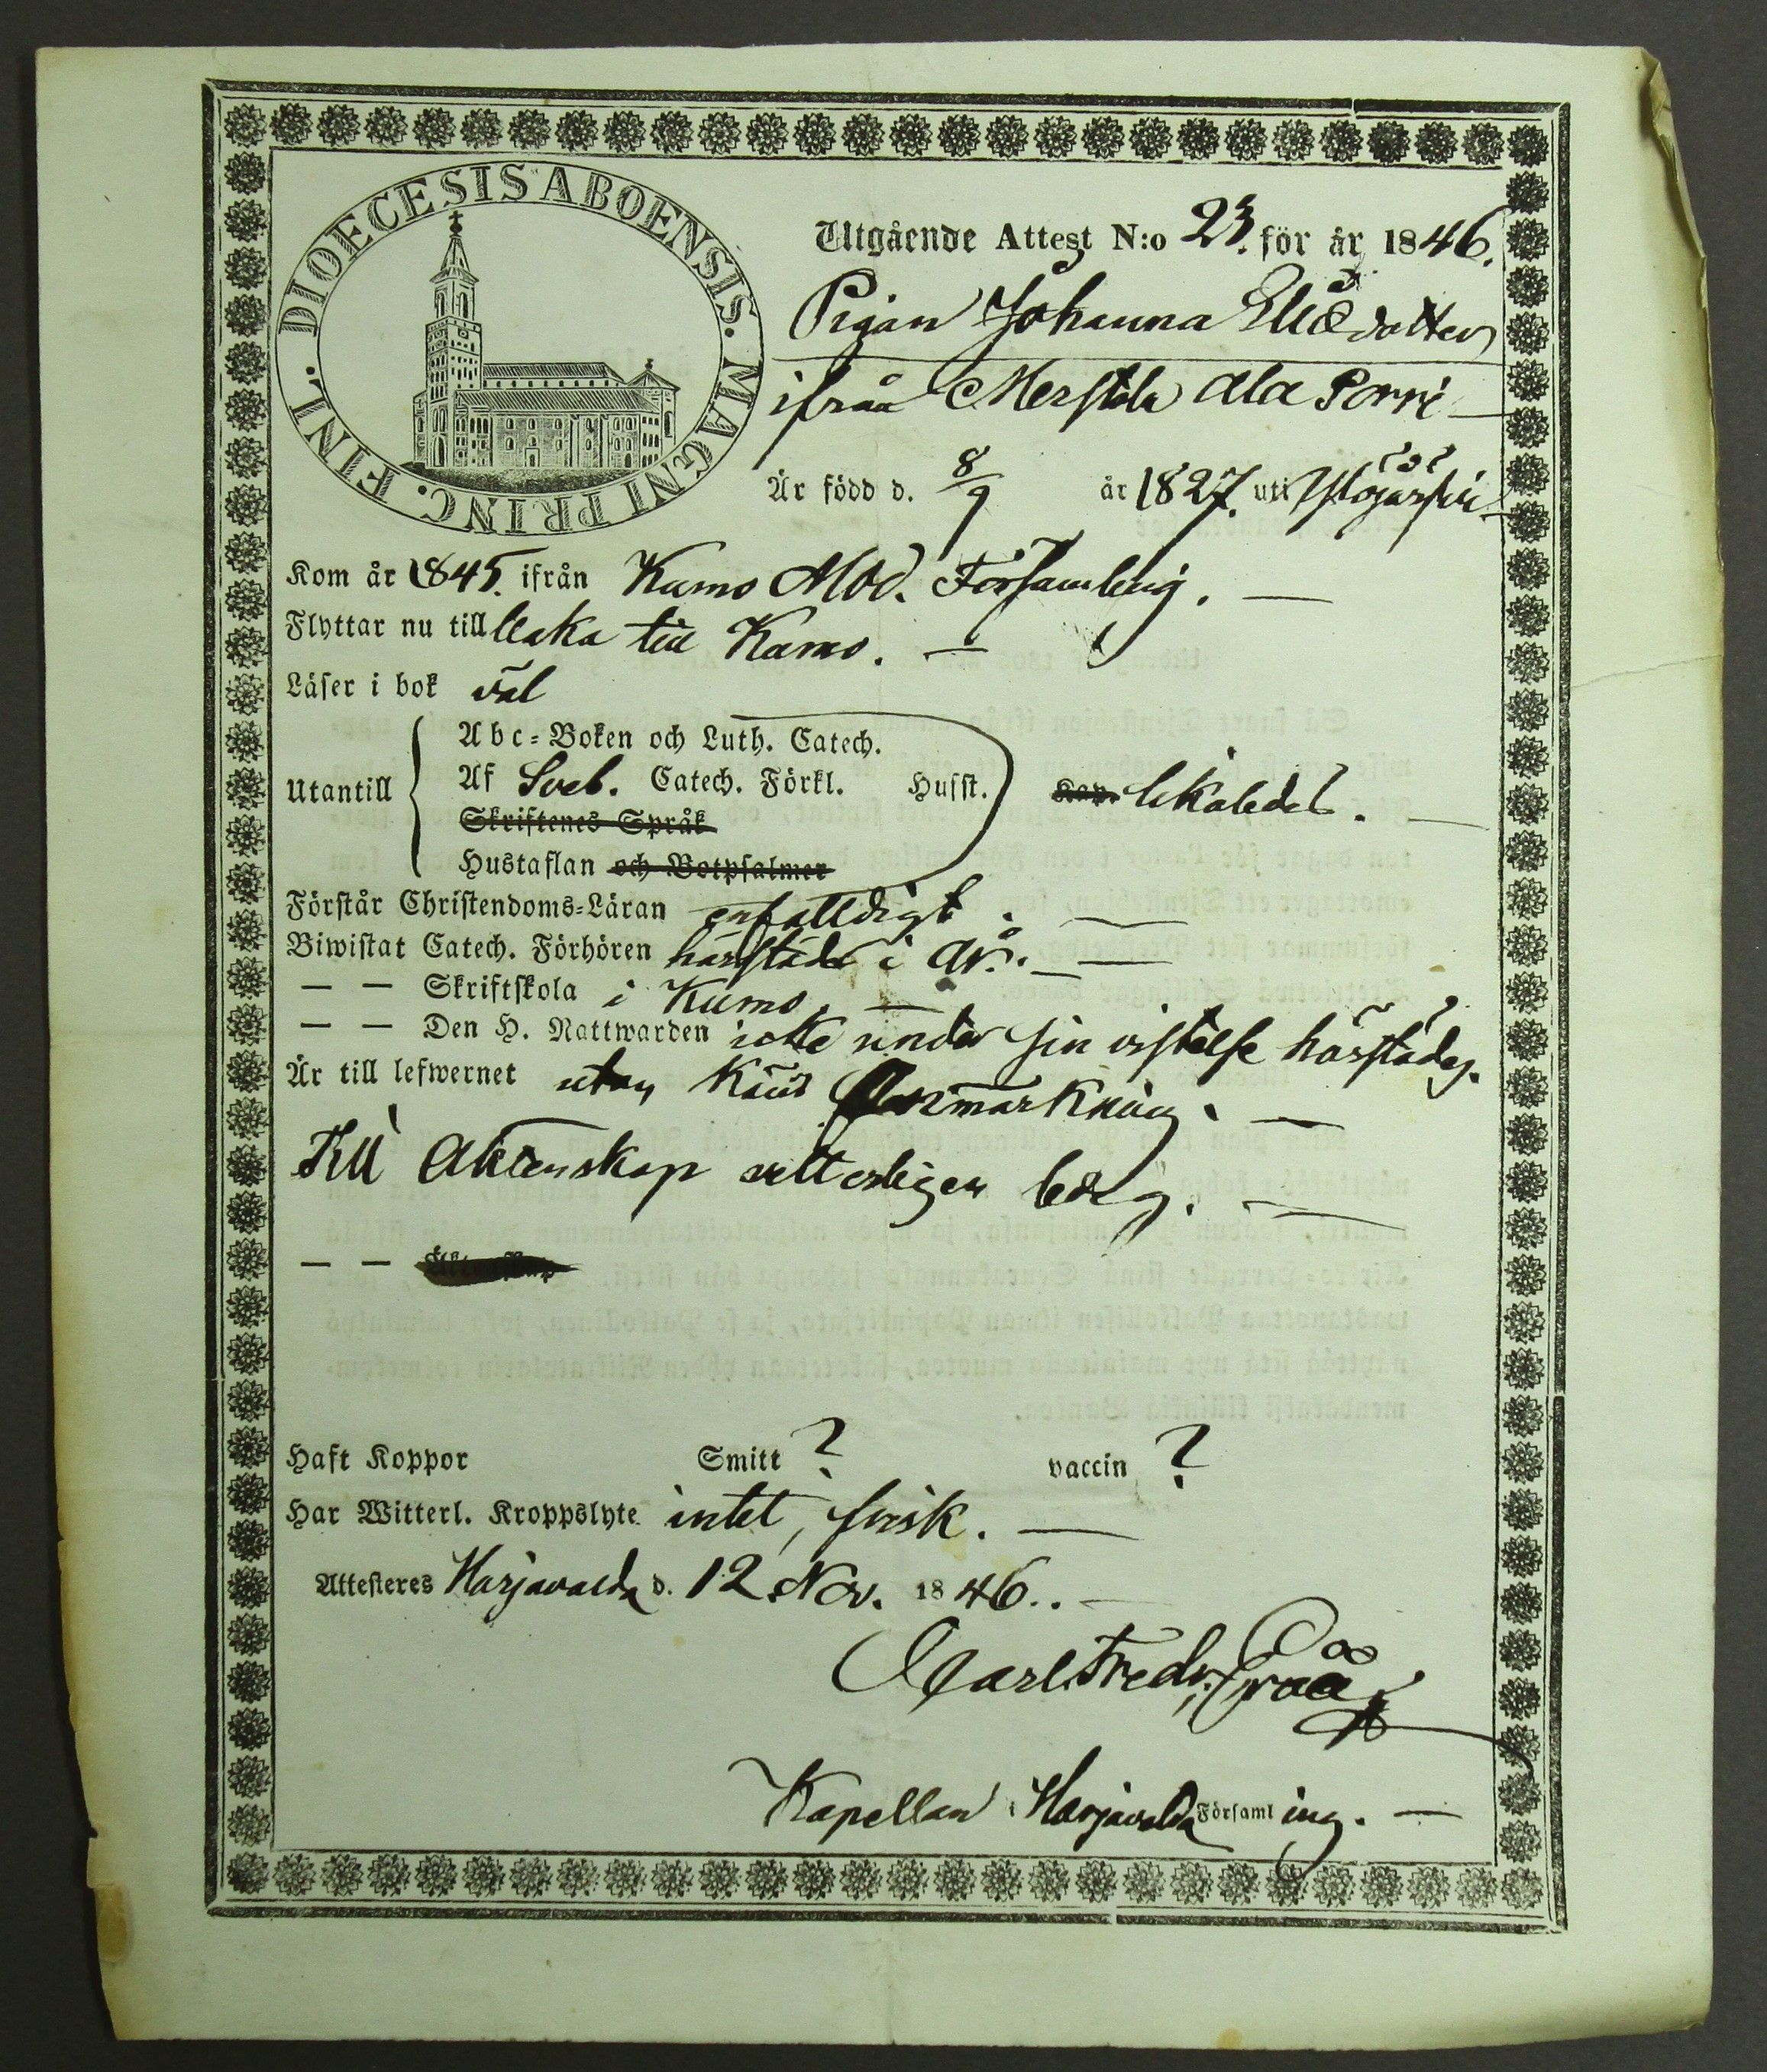 DIOECESIS ABOENSIS. MAGNI PRINC. FINL.
Utgående Attest N:o 23. för år 1846.
Pigan Johanna Eliædotter
ifrån Merstola Ala Porri
Är född d. 8/9 år 1827. uti
Kom år 1845. ifrån Kumo Mod. Församling.
Flyttar nu till tillbaka till Kumo.
Läser i bok väl
Utantill
Abc-Boken och Luth. Catech.
Af Sveb. Catech. Förkl. Husst.
Skriftenes Språk
Hustaflan och Botpsalmer
Kan
Förstår Christendoms-Läran enfalldigt.
Biwistat Catech. Förhören härstädes i år.
— — Skriftskola i Kumo.
— — Den H. Nattwarden icke under sin vistelse härstädes.
Är till lefwernet utan känd Anmärkning.
Till Äktenskap vetterligen ledig.
— — Äktenskap
Haft Koppor Smitt ? vaccin ?
Har Witterl. Kroppslyte intet, frisk.
Attesteres Harjavalda d. 12 Nov. 1846.
Carl Fredr. Gråå
Kapellan i Harjavalda Församling.